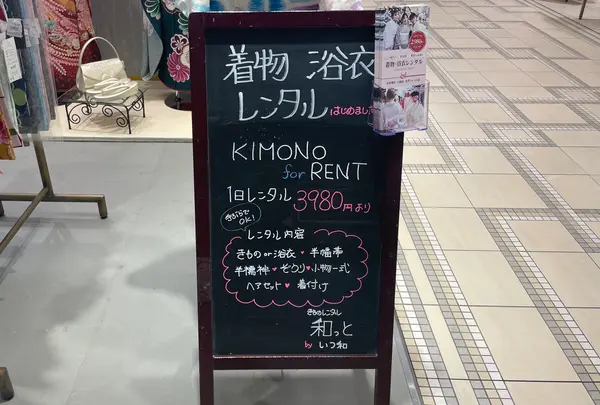 着物 浴衣
レンタル はじめまし
KIMONO
for RENT
1日レンタル 3980円より
手ぶらで
OK!
レンタル内容
きもの or 浴衣・半幅帯
半襦袢・ぞうり♥小物一式
ヘアセット♥着付け
きものレンタル
和っと
by いつ和
着物・浴衣レンタル